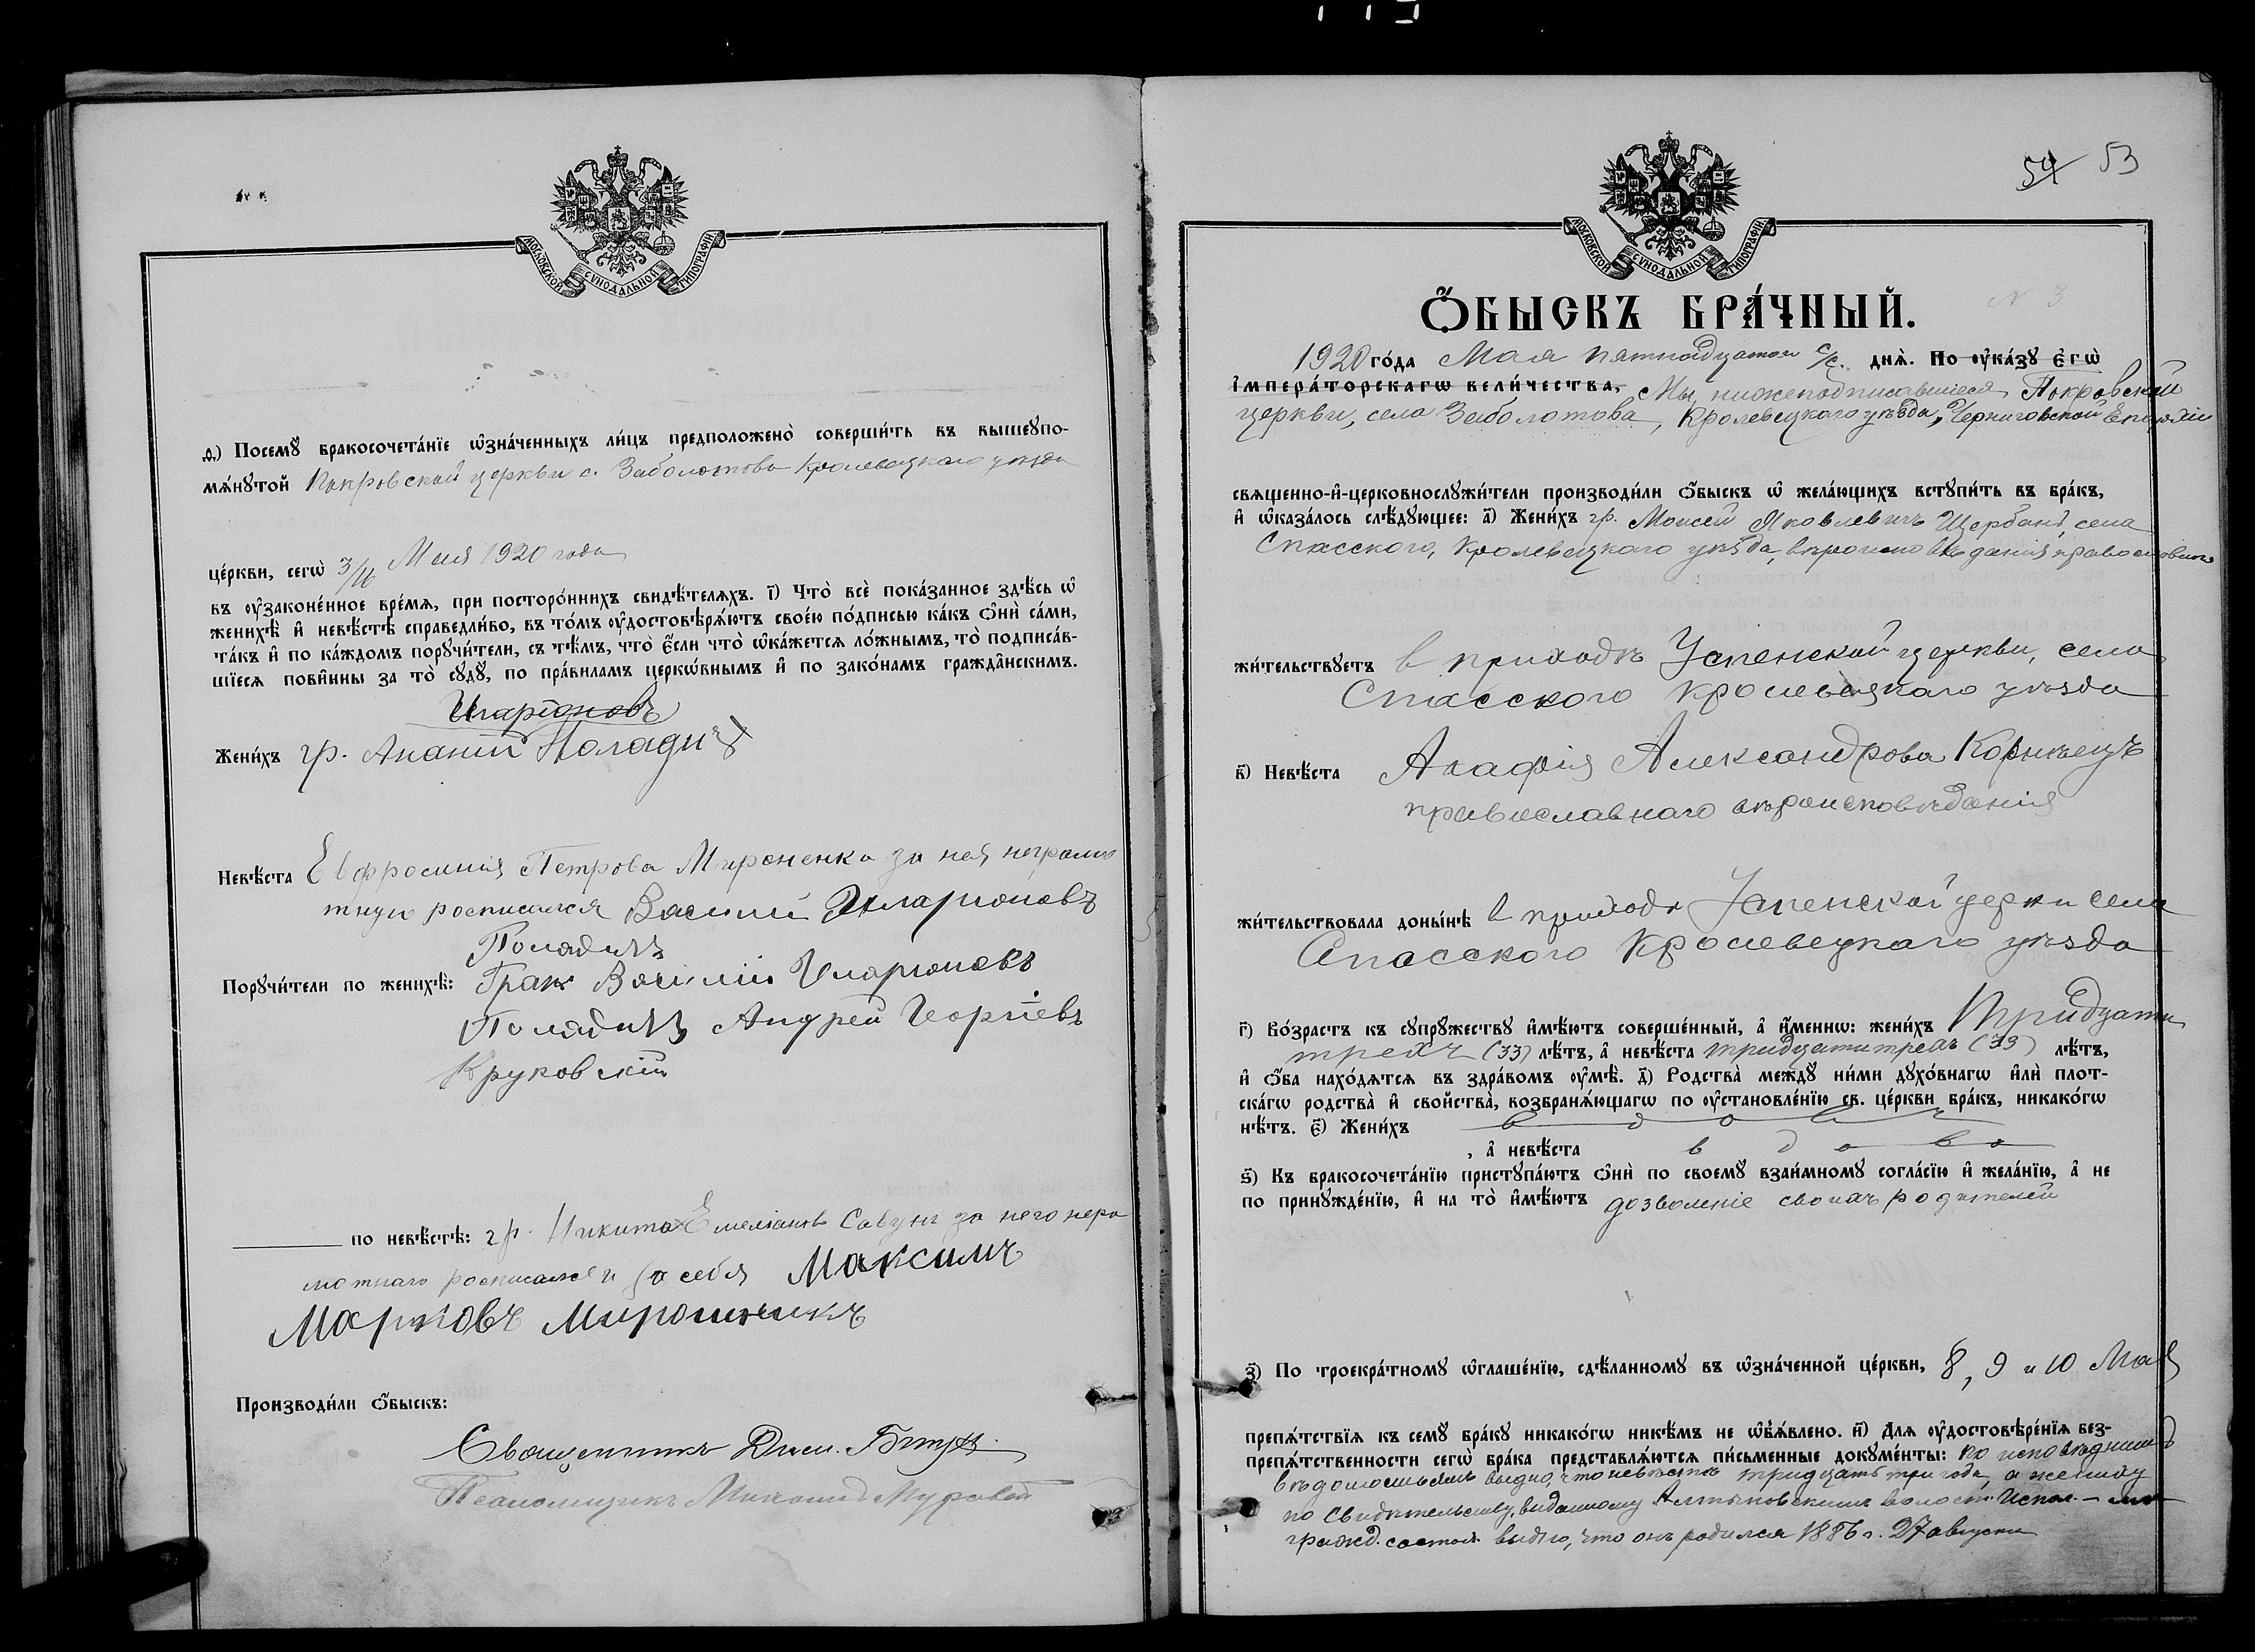 МОСКОВСКОЙ СѴНОДАЛЬНОЙ ТИПОГРАФІИ
ѳ҃.) Посемꙋ̀ бракосочета́нїе ѡ҆зна́ченныхъ ли́цъ предположено̀ соверши́ть въ вышеꙋпо-
мѧ́нꙋтой Покровской церкви с. Заболотова Кролевецкаго уезда
це́ркви, сегѡ̀ 3/16 Мая 1920 года
въ ᲂу҆законе́нное вре́мѧ, при посторо́ннихъ свидѣ́телѧхъ. і҃) Что̀ всѐ пока́занное здѣ́сь ѡ҆
женихѣ̀ и҆ невѣ́стѣ справедли́во, въ то́мъ ᲂу҆достовѣрѧ́ютъ свое́ю по́дписью ка́къ ѻ҆нѝ са́ми,
та́къ и҆ по ка́ждомъ порꙋчи́тели, съ тѣ́мъ, что̀ є҆́сли что̀ ѡ҆ка́жетсѧ ло́жнымъ, то̀ подписа́в-
шїесѧ пови́нны за то̀ сꙋдꙋ̀, по пра́виламъ церкѡ́внымъ и҆ по зако́намъ гражда̑нскимъ.
Иларіоновъ
Жени́хъ гр. Ананій
Невѣ́ста Евфросинія Петрова Мироненко за нея неграмо
тную росписался Василій Иларіоновъ
Порꙋчи́тели по женихѣ̀: Граж Василій Иларіоновъ
Андрей Георгіевъ
Круковскій
по невѣ́стѣ: гр. Никита Емеліановъ Савунъ за него негра
мотнаго росписался и за себя Максимъ
Марковъ Мирошникъ
Производи́ли ѻ҆́быскъ:
Священникъ
Псаломщикъ
54 53
МОСКОВСКОЙ СѴНОДАЛЬНОЙ ТИПОГРАФІИ
N 3
Ѻ҆́БЫСКЪ БРА́ЧНЫЙ.
1920 го́да Мая пятнадцатого с/с. днѧ̀. По ᲂу҆ка́зꙋ є҆гѡ̀
і҆мпера́торскагѡ вели́чества, Мы, нижеподписавшіеся Покровской
церкви, села Заболотова, Кролевецкаго уѣзда, Черниговской Епархіи
свѧщенно-и҆-церковнослꙋжи́тели производи́ли ѻ҆́быскъ ѡ҆ жела́ющихъ встꙋпи́ть въ бра́къ,
и҆ ѡ҆каза́лось слѣ́дꙋющее: а҃) Жени́хъ гр. Моисей Яковлевичъ Щербакъ, села
Спасского, Кролевецкаго уѣзда, вѣроисповѣданія православнаго
жи́тельствꙋетъ в приходѣ Успенской церкви, села
Спасского Кролевецкаго уѣзда
в҃) Невѣ́ста Агафія Александрова Корніецъ
православнаго вѣроисповѣданія
жи́тельствовала донн҃ѣ в приходѣ Успенской церкви села
Спасского Кролевецкаго уѣзда
г҃) Во́зрастъ къ сꙋпрꙋ́жествꙋ и҆мѣ́ютъ соверше́нный, а҆ и҆́менно: жени́хъ Тридцати
трехъ (33) лѣ́тъ, а҆ невѣ́ста тридцати трехъ (33) лѣ́тъ,
и҆ ѻ҆́ба нахо́дѧтсѧ въ здра́вомъ ᲂу҆мѣ̀. д҃) Родства̀ междꙋ̀ ни́ми дꙋхо́внагѡ и҆лѝ плот-
ска́гѡ родства̀ и҆ свойства̀, возбранѧ́ющагѡ по ᲂу҆становле́нїю св. це́ркви бра́къ, никако́гѡ
нѣ́тъ. є҃) Жени́хъ вдовъ
, а҆ невѣ́ста вдова
ѕ҃) Къ бракосочета́нїю пристꙋпа́ютъ ѻ҆нѝ по своемꙋ̀ взаи́мномꙋ согла́сїю и҆ жела́нїю, а҆ не
по принꙋжде́нїю, и҆ на то̀ и҆мѣ́ютъ дозволеніе своихъ родителей
з҃) По троекра́тномꙋ ѡ҆глаше́нїю, сдѣ́ланномꙋ въ ѡ҆зна́ченной це́ркви, 8, 9 и 10 Мая
препѧ́тствїѧ къ семꙋ̀ бра́кꙋ никако́гѡ никѣ́мъ не ѡ҆б̾ѧ́влено. и҃) Для ᲂу҆достовѣре́нїѧ без-
препѧ́тственности сегѡ̀ бра́ка представлѧ́ютсѧ пи́сьменные докꙋме́нты: по исповѣднымъ
вѣдомостямъ видно, что невѣстѣ тридцать три года, а жениху
по свидѣтельству, выданному Алтыновскимъ волост. Испол.
гражд. состоя. видно, что онъ родился 1886 г. 27 августа